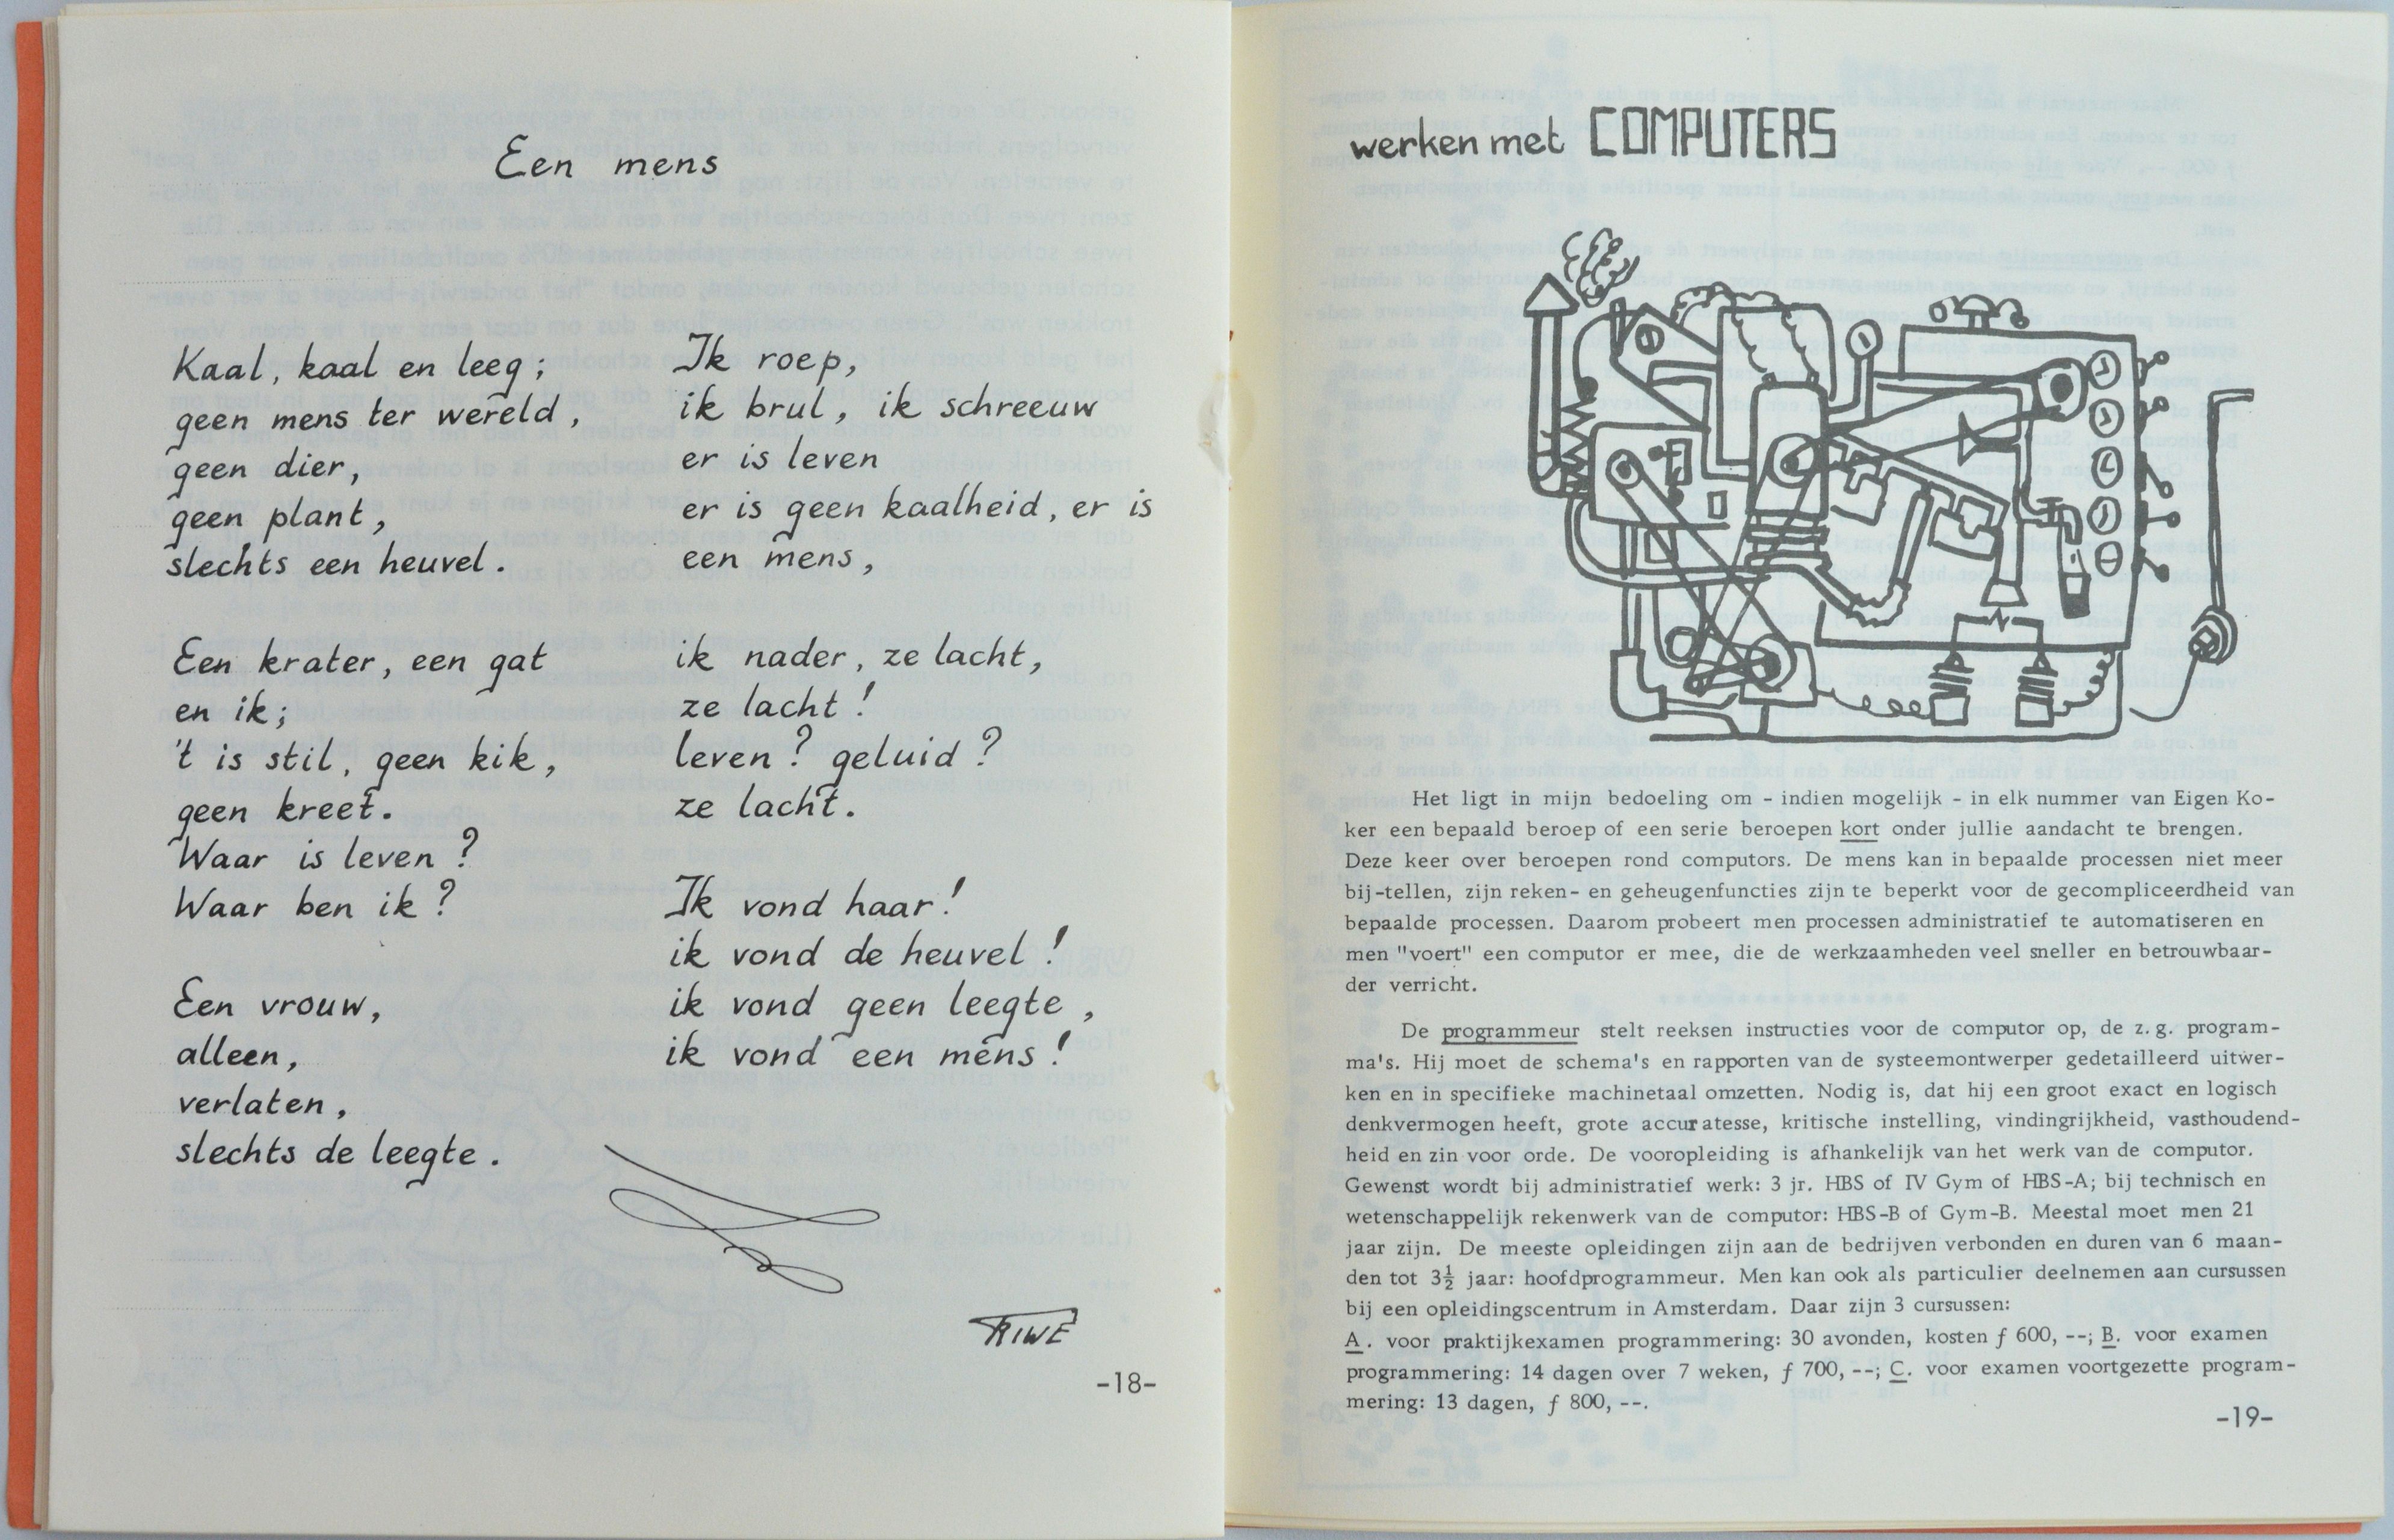 Een mens
Kaal, kaal en leeg;
geen mens ter wereld,
geen dier,
geen plant,
slechts een heuvel.
Een krater, een gat
en ik;
't is stil, geen kik,
geen kreet.
Waar is leven?
Waar ben ik?
Een vrouw,
alleen,
verlaten,
slechts de leegte.
Ik roep,
ik brul, ik schreeuw
er is leven
er is geen kaalheid, er is
een mens,
ik nader, ze lacht,
ze lacht!
leven? geluid?
ze lacht.
Ik vond haar!
ik vond de heuvel!
ik vond geen leegte,
ik vond een mens!
RIWE
-18-
werken met COMPUTERS
Het ligt in mijn bedoeling om - indien mogelijk - in elk nummer van Eigen Ko-
ker een bepaald beroep of een serie beroepen kort onder jullie aandacht te brengen.
Deze keer over beroepen rond computors. De mens kan in bepaalde processen niet meer
bij-tellen, zijn reken- en geheugenfuncties zijn te beperkt voor de gecompliceerdheid van
bepaalde processen. Daarom probeert men processen administratief te automatiseren en
men "voert" een computor er mee, die de werkzaamheden veel sneller en betrouwbaar-
der verricht.
De programmeur stelt reeksen instructies voor de computor op, de z.g. program-
ma's. Hij moet de schema's en rapporten van de systeemontwerper gedetailleerd uitwer-
ken en in specifieke machinetaal omzetten. Nodig is, dat hij een groot exact en logisch
denkvermogen heeft, grote accuratesse, kritische instelling, vindingrijkheid, vasthoudend-
heid en zin voor orde. De vooropleiding is afhankelijk van het werk van de computor.
Gewenst wordt bij administratief werk: 3 jr. HBS of IV Gym of HBS-A; bij technisch en
wetenschappelijk rekenwerk van de computor: HBS-B of Gym-B. Meestal moet men 21
jaar zijn. De meeste opleidingen zijn aan de bedrijven verbonden en duren van 6 maan-
den tot 3½ jaar: hoofdprogrammeur. Men kan ook als particulier deelnemen aan cursussen
bij een opleidingscentrum in Amsterdam. Daar zijn 3 cursussen:
A. voor praktijkexamen programmering: 30 avonden, kosten ƒ 600, --; B. voor examen
programmering: 14 dagen over 7 weken, ƒ 700, --; C. voor examen voortgezette program-
mering: 13 dagen, ƒ 800, --.
-19-